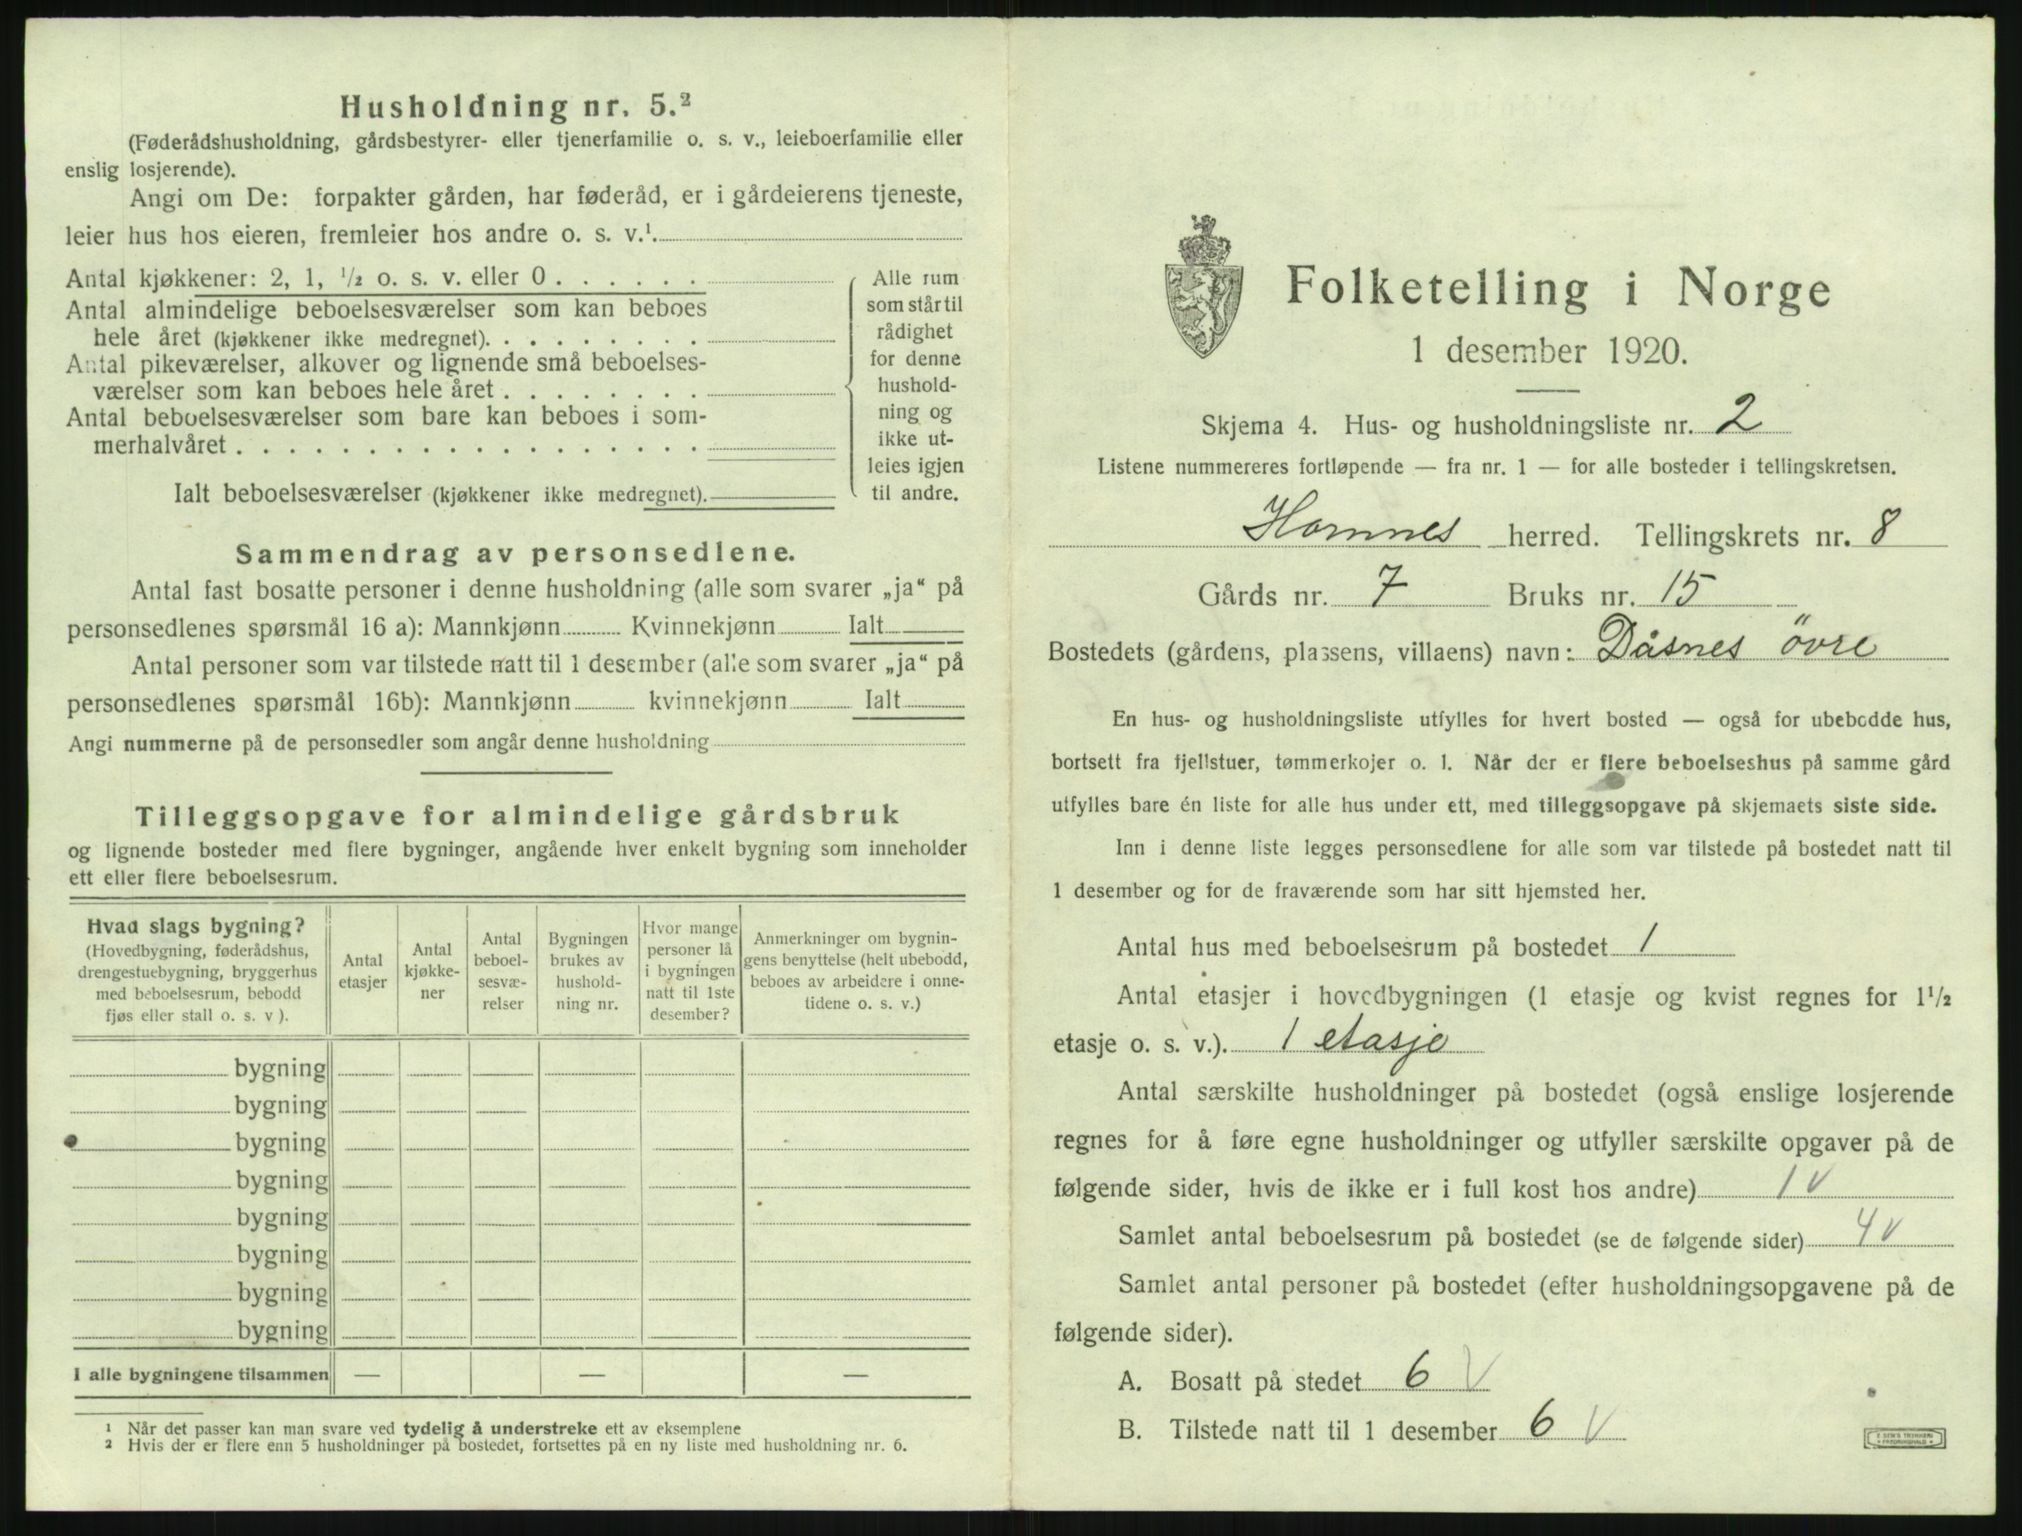 Husholdning nr. 5.²
(Føderådshusholdning, gårdsbestyrer- eller tjenerfamilie o. s. v., leieboerfamilie eller
enslig losjerende).
Angi om De: forpakter gården, har føderåd, er i gårdeierens tjeneste,
leier hus hos eieren, fremleier hos andre o. s. v.¹.
Antal kjøkkener: 2, 1, ½ o. s. v. eller 0 . . . . . .
Antal almindelige beboelsesværelser som kan beboes
hele året (kjøkkener ikke medregnet). . . . . . . . .
Antal pikeværelser, alkover og lignende små beboelses-
værelser som kan beboes hele året . . . . . . . .
Antal beboelsesværelser som bare kan beboes i som-
merhalvåret . . . . . . . . . . . . . . . . . .
Ialt beboelsesværelser (kjøkkener ikke medregnet).
Alle rum
som står til
rådighet
for denne
hushold-
ning og
ikke ut-
leies igjen
til andre.
Sammendrag av personsedlene.
Antal fast bosatte personer i denne husholdning (alle som svarer „ja“ på
personsedlenes spørsmål 16 a): Mannkjønn Kvinnekjønn Ialt
Antal personer som var tilstede natt til 1 desember (alle som svarer „ja“ på
personsedlenes spørsmål 16b): Mannkjønn kvinnekjønn Ialt
Angi nummerne på de personsedler som angår denne husholdning
Tilleggsopgave for almindelige gårdsbruk
og lignende bosteder med flere bygninger, angående hver enkelt bygning som inneholder
ett eller flere beboelsesrum.
Hvad slags bygning?
(Hovedbygning, føderådshus,
drengestuebygning, bryggerhus
med beboelsesrum, bebodd
fjøs eller stall o. s. v ).
Antal
etasjer
Antal
kjøkke-
ner
Antal
beboel-
sesvæ-
relser
Bygningen
brukes av
hushold-
ning nr.
Hvor mange
personer lå
i bygningen
natt til 1ste
desember?
Anmerkninger om bygnin-
gens benyttelse (helt ubebodd,
beboes av arbeidere i onne-
tidene o. s. v.)
bygning
bygning
bygning
bygning
bygning
bygning
bygning
bygning
I alle bygningene tilsammen — — —
¹ Når det passer kan man svare ved tydelig å understreke ett av eksemplene
² Hvis der er flere enn 5 husholdninger på bostedet, fortsettes på en ny liste med husholdning nr. 6.
Folketelling i Norge
1 desember 1920.
Skjema 4. Hus- og husholdningsliste nr. 2
Listene nummereres fortløpende — fra nr. 1 — for alle bosteder i tellingskretsen.
Hornnes herred. Tellingskrets nr. 8
Gårds nr. 7 Bruks nr. 15
Bostedets (gårdens, plassens, villaens) navn: Dåsnes övre
En hus- og husholdningsliste utfylles for hvert bosted — også for ubebodde hus,
bortsett fra fjellstuer, tømmerkojer o. l. Når der er flere beboelseshus på samme gård
utfylles bare én liste for alle hus under ett, med tilleggsopgave på skjemaets siste side.
Inn i denne liste legges personsedlene for alle som var tilstede på bostedet natt til
1 desember og for de fraværende som har sitt hjemsted her.
Antal hus med beboelsesrum på bostedet 1
Antal etasjer i hovedbygningen (1 etasje og kvist regnes for 1½
etasje o. s. v.). 1 etasje
Antal særskilte husholdninger på bostedet (også enslige losjerende
regnes for å føre egne husholdninger og utfyller særskilte opgaver på de
følgende sider, hvis de ikke er i full kost hos andre) 1 v
Samlet antal beboelsesrum på bostedet (se de følgende sider) 4 v
Samlet antal personer på bostedet (efter husholdningsopgavene på de
følgende sider).
A. Bosatt på stedet 6 v
B. Tilstede natt til 1 desember 6 v